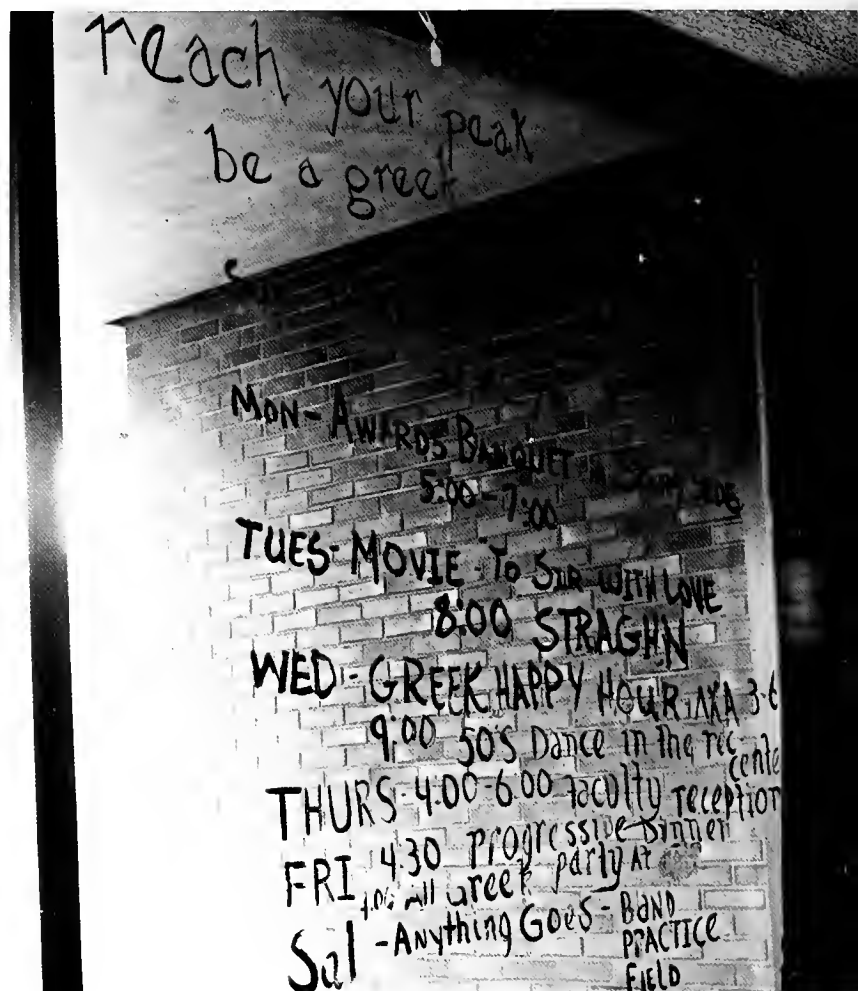 reach your peak
be a greek
MON - AWARDS BANQUET
5:00 - 7:00
TUES - MOVIE - TO SIR WITH LOVE
8:00 STRAGHN
WED - GREEK HAPPY HOUR ΛΧΑ 3-6
9:00 50'S Dance in the rec
cente
THURS - 4:00-6:00 faculty reception
FRI 4:30 progressive dinner
All Greek party At
Sat - Anything Goes - BAND
PRACTICE
FIELD